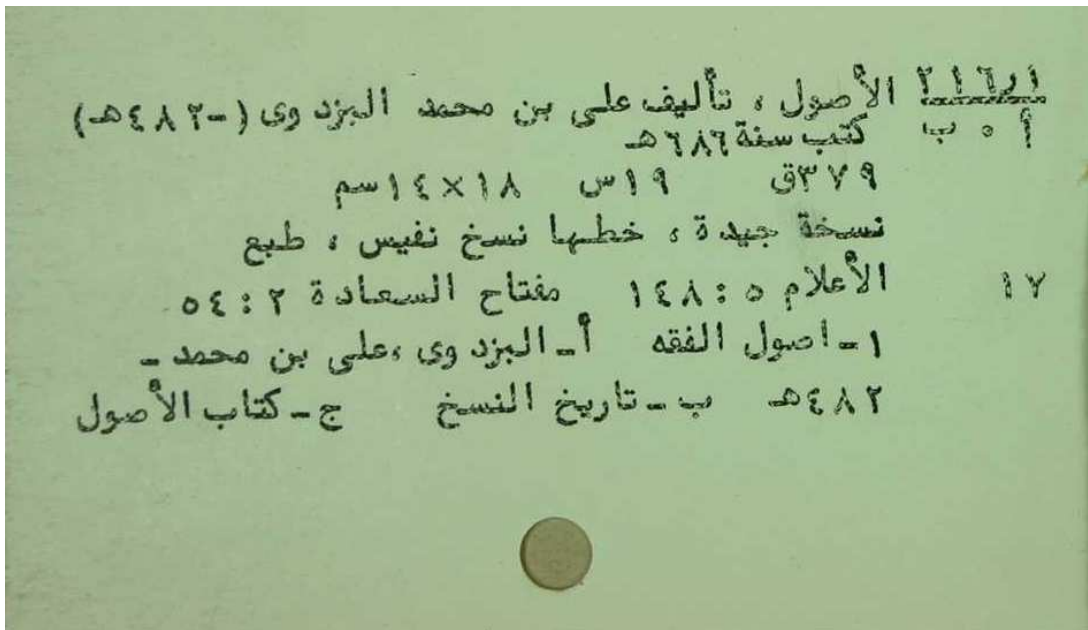 ٢١٦ر١ الأصول ، تأليف على بن محمد البزدوى (-٤٨٢هـ)
أ ٠ ب كتب سنة ٦٨٦هـ
٣٧٩ق ١٩س ١٨×١٤سم
نسخة جيدة ، خطها نسخ نفيس ، طبع
١٧ الأعلام ٥ : ١٤٨ مفتاح السعادة ٢ : ٥٤
١ـ اصول الفقه أـ البزدوى ،على بن محمد ـ
٤٨٢هـ بـ تاريخ النسخ جـ كتاب الأصول